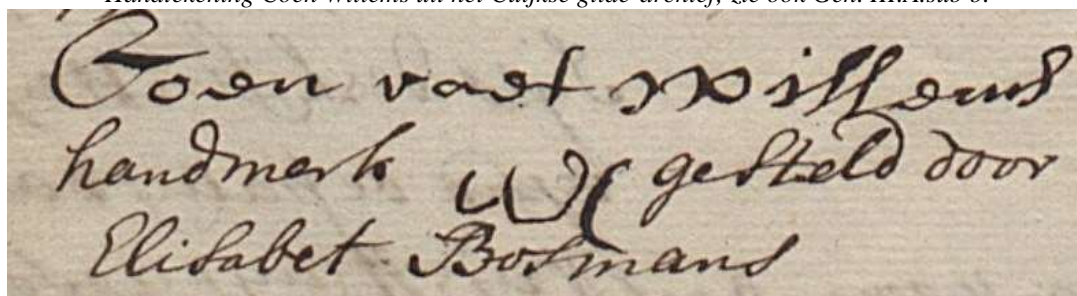 Handtekening Coen Willems uit het Cuijkse gilde-archief, zie ook Gen. III.A.sub
Coen raet Willems
handmerk gesteld door
Elisabet Bosmans